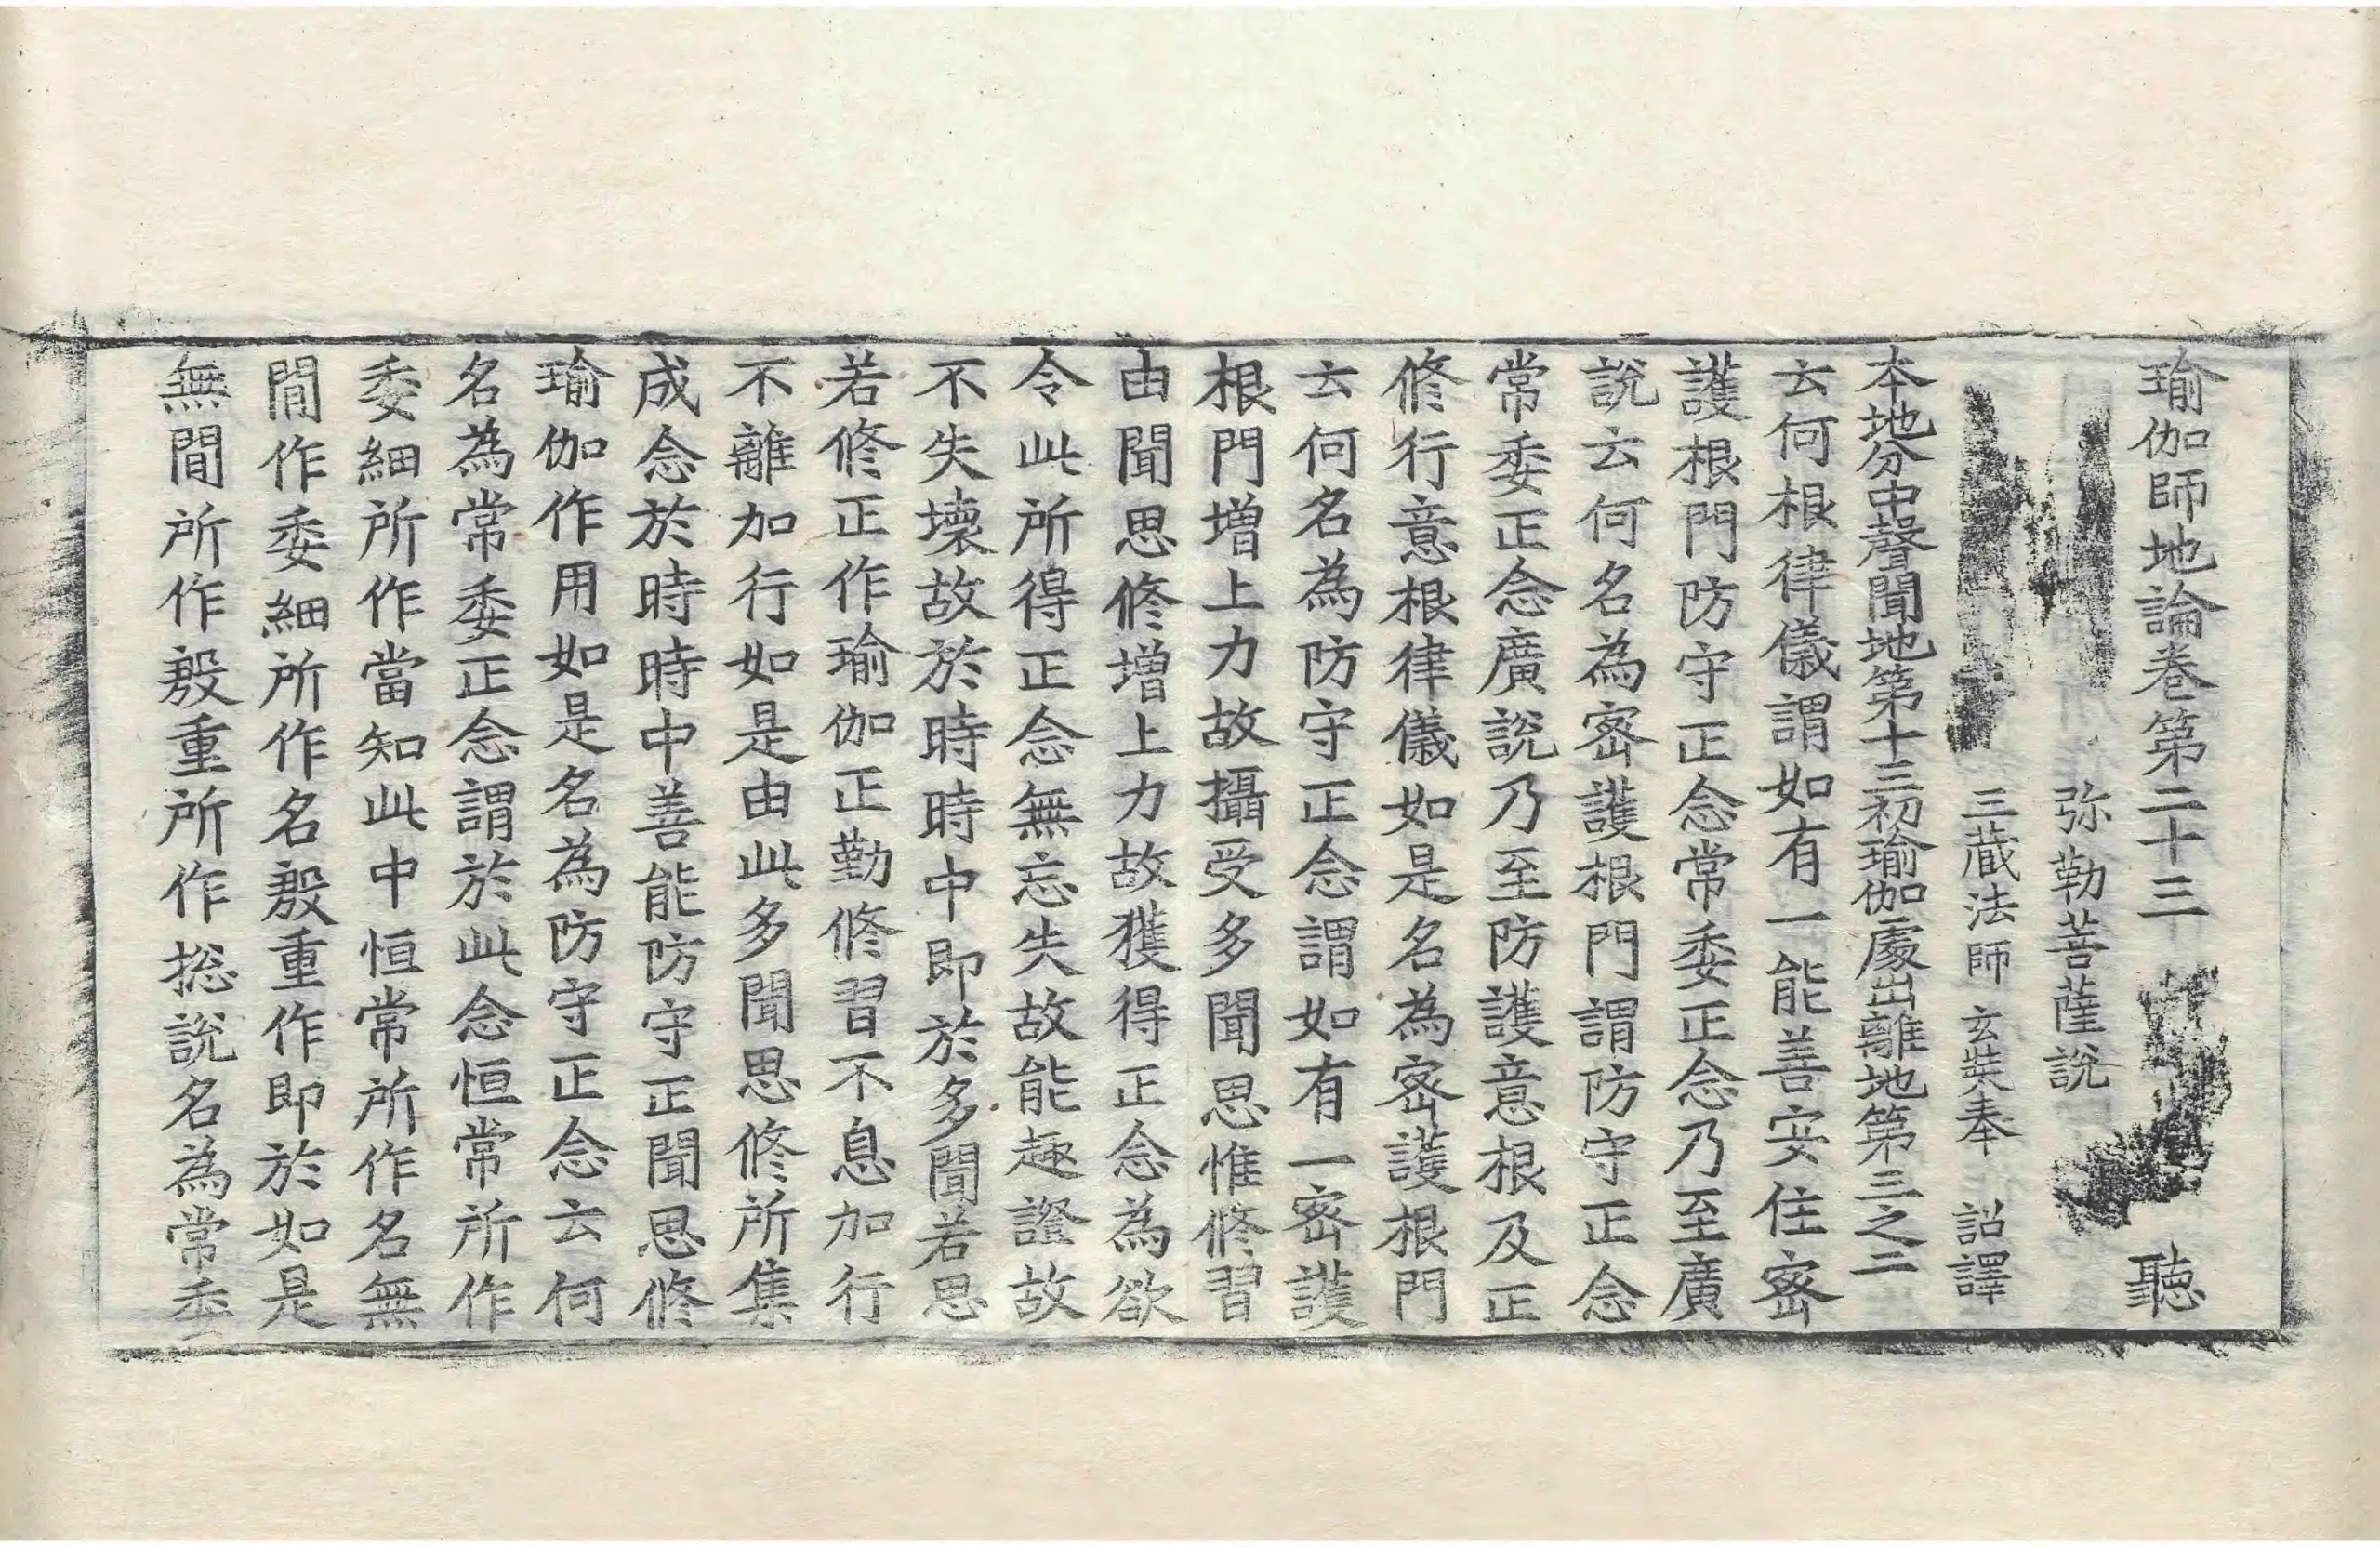 瑜伽師地論卷第二十三 聽
弥勒菩薩說
三藏法師 玄奘奉 詔譯
本地分中聲聞地第十三初瑜伽處出離地第三之二
云何根律儀謂如有一能善安住密
護根門防守正念常委正念乃至廣
說云何名為密護根門謂防守正念
常委正念廣說乃至防護意根及正
修行意根律儀如是名為密護根門
云何名為防守正念謂如有一密護
根門增上力故攝受多聞思惟修習
由聞思修增上力故獲得正念為欲
令此所得正念無忘失故能趣證故
不失壞故於時時中即於多聞若思
若修正作瑜伽正勤修習不息加行
不離加行如是由此多聞思修所集
成念於時時中善能防守正聞思修
瑜伽作用如是名為防守正念云何
名為常委正念謂於此念恒常所作
委細所作當知此中恒常所作名無
間作委細所作名殷重作即於如是
無間所作殷重所作捴說名為常委